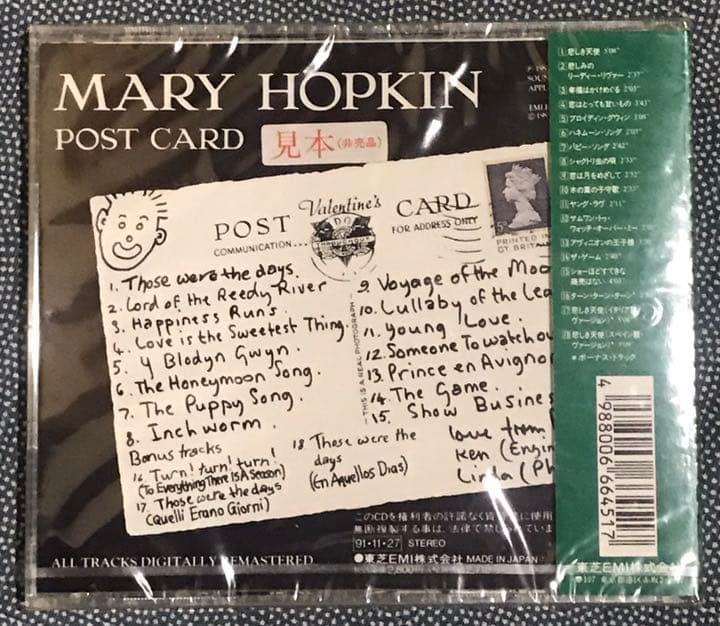 MARY HOPKIN
POST CARD
見本(非売品)
POST Valentine's CARD
COMMUNICATION... FOR ADDRESS ONLY
PRINTED IN
GT BRIT
THIS IS A REAL PHOTOGRAPH
1. Those were the days.
2. Lord of the Reedy River
3. Happiness Runs.
4. Love is the Sweetest Thing.
5. Y Blodyn Gwyn.
6. The Honeymoon Song.
7. The Puppy Song.
8. Inch worm.
Bonus tracks
16 Turn! turn! turn!
(To Everything There Is A Season)
17. Those were the days
(Quelli Erano Giorni)
18 Those were the
days
(En Aquellos Dias)
9. Voyage of the Moo
10. Lullaby of the Lea
11. Young Love.
12. Someone To watch o
13. Prince en Avignon
14. The Game.
15. Show Busines
love from
Ken (Engin
Linda (Ph
このCDを権利者の許諾なく
無断複製する事は、法律で禁じられていま
91・11・27 STEREO
東芝EMI株式会社 MADE IN JAPAN
ALL TRACKS DIGITALLY REMASTERED
1 悲しき天使 5'08"
2 悲しみの
リーディー・リヴァー 2'37"
3 幸福はかけめぐる 2'03"
4 恋はとっても甘いもの 3'43"
5 ブロイディン・グウィン 3'08"
6 ハネムーン・ソング 2'07"
7 パピー・ソング 2'42"
8 シャクトリ虫の唄 2'33"
9 恋は月をめざして
10 木の葉の子守歌
11 ヤング・ラヴ 2'11"
12 サムワン・トゥ・
ウォッチ・オーバー・ミー
13 アヴィニオンの王子様
14 ザ・ゲーム
15 ショーほどすてきな
商売はない
16 ターン・ターン・ターン*
17 悲しき天使(イタリア語
ヴァージョン)*
18 悲しき天使(スペイン語
ヴァージョン)*
*ボーナス・トラック
4 988006 664517
東芝EMI株式会社
〒107 東京都港区赤坂